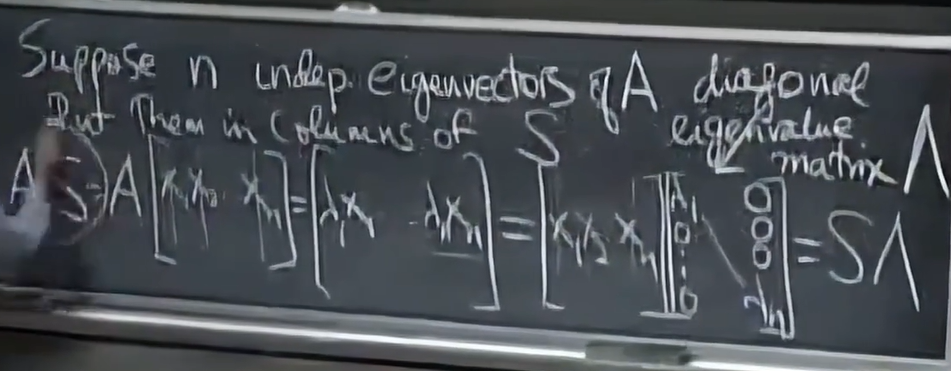 Suppose n indep. eigenvectors of A diagonal
Put them in columns of S eigenvalue
matrix Λ
AS = A [x₁ x₂ xₙ] = [λx₁ λxₙ] = [x₁ x₂ xₙ] [λ₁ 0 ... 0 0 0 0 λₙ] = SΛ